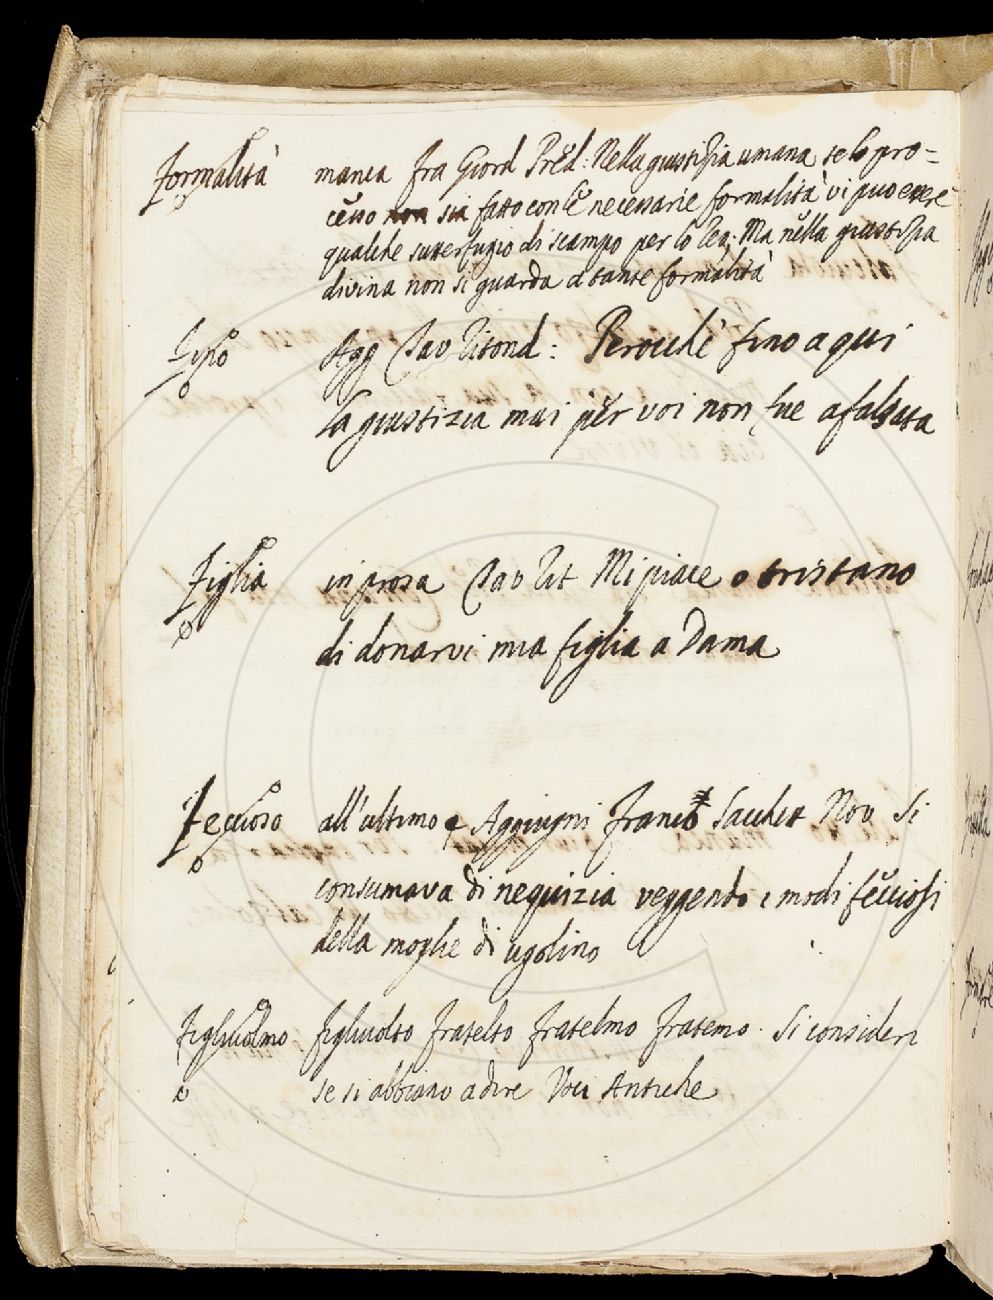 formalità manca fra Giord Pred: Nella giustizia umana se lo pro=
cesso non sia fatto con le necessarie formalità vi può essere
qualche sutterfugio di scampo per lo Ma nella giustizia
divina non si guarda a tante formalità
Fino Agg Tav Ritond: Perocchè fino a qui
la giustizia mai per voi non fue afalsata
Figlia in prosa Tav Rit Mi piace o tristano
di donarvi mia figlia a Dama
Feccioso all'ultimo Aggiugni Franco Sacchet Nov Si
consumava di nequizia veggendo i modi fecciosi
della moglie di ugolino
Figliuolmo figliuolto fratelto fratelmo fratemo. Si consideri
se si abbiano a dire Voci Antiche